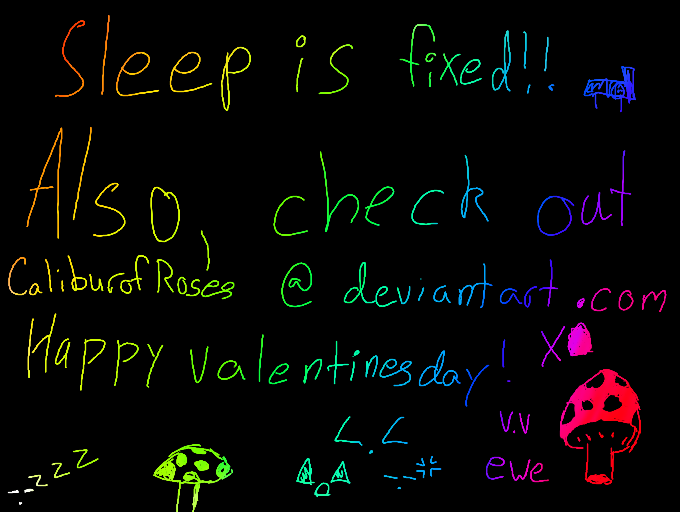 Sleep is fixed!!
Also, check out
CaliburofRoses @ deviantart.com
Happy valentinesday! XD
v.v
zzz
ewe